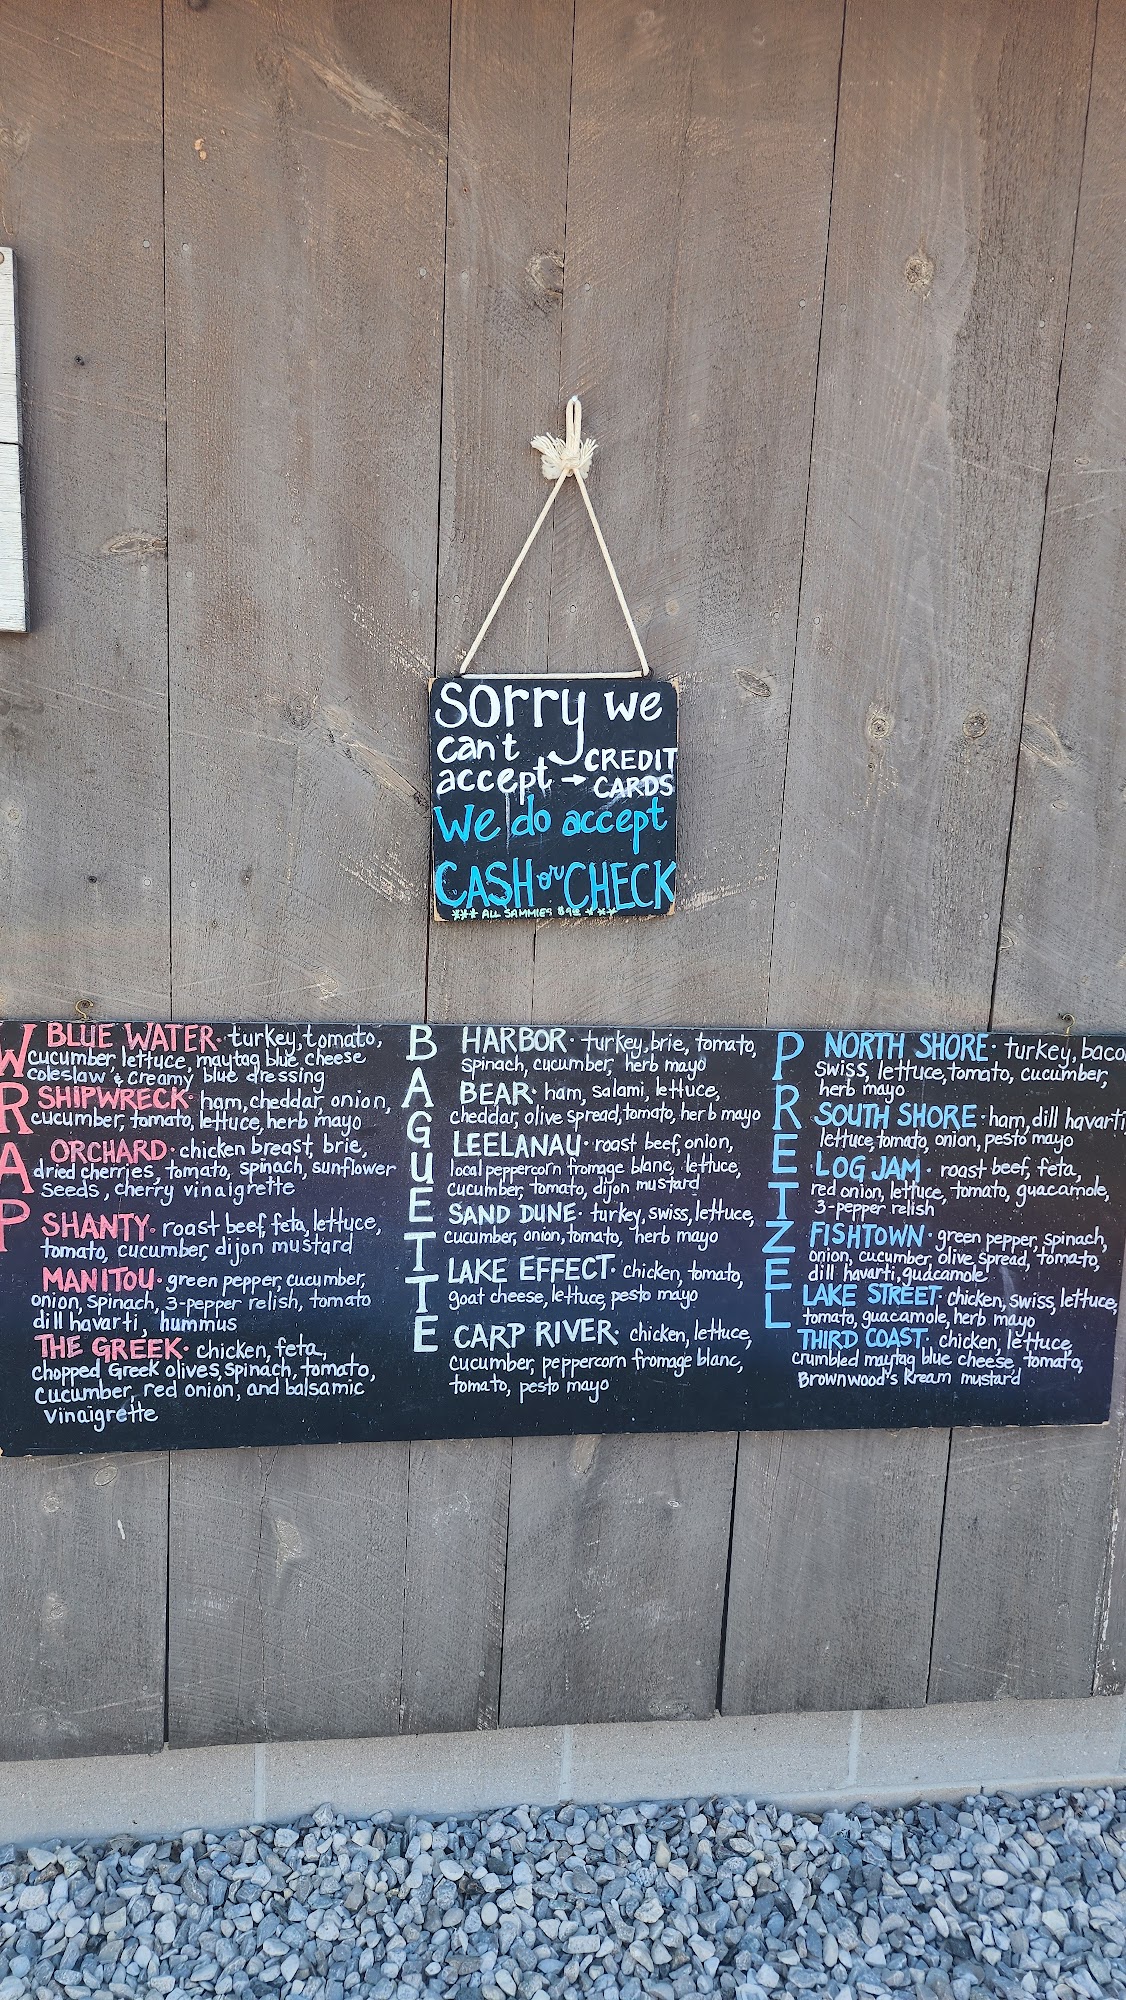 sorry we
can't
accept → CREDIT
CARDS
We do accept
CASH or CHECK
*** ALL SAMMIES *** 
WRAP
BLUE WATER · turkey, tomato,
cucumber, lettuce, maytag blue cheese
coleslaw & creamy blue dressing
SHIPWRECK · ham, cheddar, onion,
cucumber, tomato, lettuce, herb mayo
ORCHARD · chicken breast, brie,
dried cherries, tomato, spinach, sunflower
seeds, cherry vinaigrette
SHANTY · roast beef, feta, lettuce,
tomato, cucumber, dijon mustard
MANITOU · green pepper, cucumber,
onion, spinach, 3-pepper relish, tomato
dill havarti, hummus
THE GREEK · chicken, feta,
chopped Greek olives, spinach, tomato,
cucumber, red onion, and balsamic
vinaigrette
BAGUETTE
HARBOR · turkey, brie, tomato,
spinach, cucumber, herb mayo
BEAR · ham, salami, lettuce,
cheddar, olive spread, tomato, herb mayo
LEELANAU · roast beef, onion,
local peppercorn fromage blanc, lettuce,
cucumber, tomato, dijon mustard
SAND DUNE · turkey, swiss, lettuce,
cucumber, onion, tomato, herb mayo
LAKE EFFECT · chicken, tomato,
goat cheese, lettuce, pesto mayo
CARP RIVER · chicken, lettuce,
cucumber, peppercorn fromage blanc,
tomato, pesto mayo
PRETZEL
NORTH SHORE · turkey, baco
swiss, lettuce, tomato, cucumber,
herb mayo
SOUTH SHORE · ham, dill havarti
lettuce, tomato, onion, pesto mayo
LOG JAM · roast beef, feta,
red onion, lettuce, tomato, guacamole,
3-pepper relish
FISHTOWN · green pepper, spinach,
onion, cucumber, olive spread, tomato,
dill havarti, guacamole
LAKE STREET · chicken, swiss, lettuce,
tomato, guacamole, herb mayo
THIRD COAST · chicken, lettuce,
crumbled maytag blue cheese, tomato,
Brownwood's Kream mustard